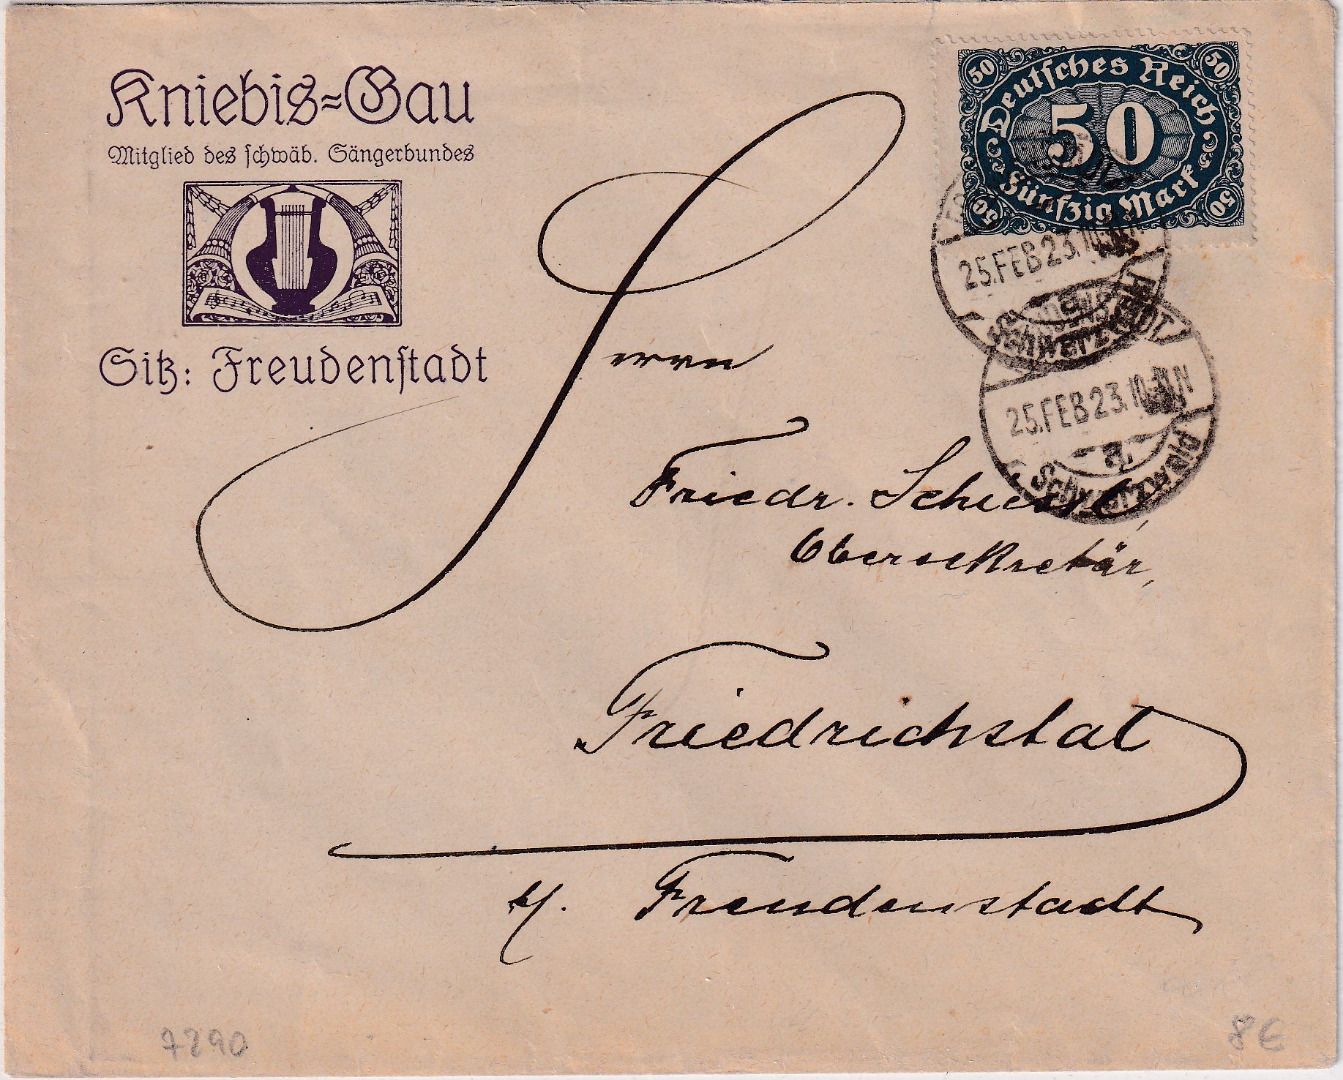 Kniebis=Gau
Mitglied des schwäb. Sängerbundes
Sitz: Freudenstadt
50 50
Deutsches Reich
50
Fünfzig Mark
50 50
25.FEB 23.10
25.FEB 23.10
Schwarzw
Herrn
Friedr.
Obersekretär,
Friedrichstal
b/. Freudenstadt
7290
8€